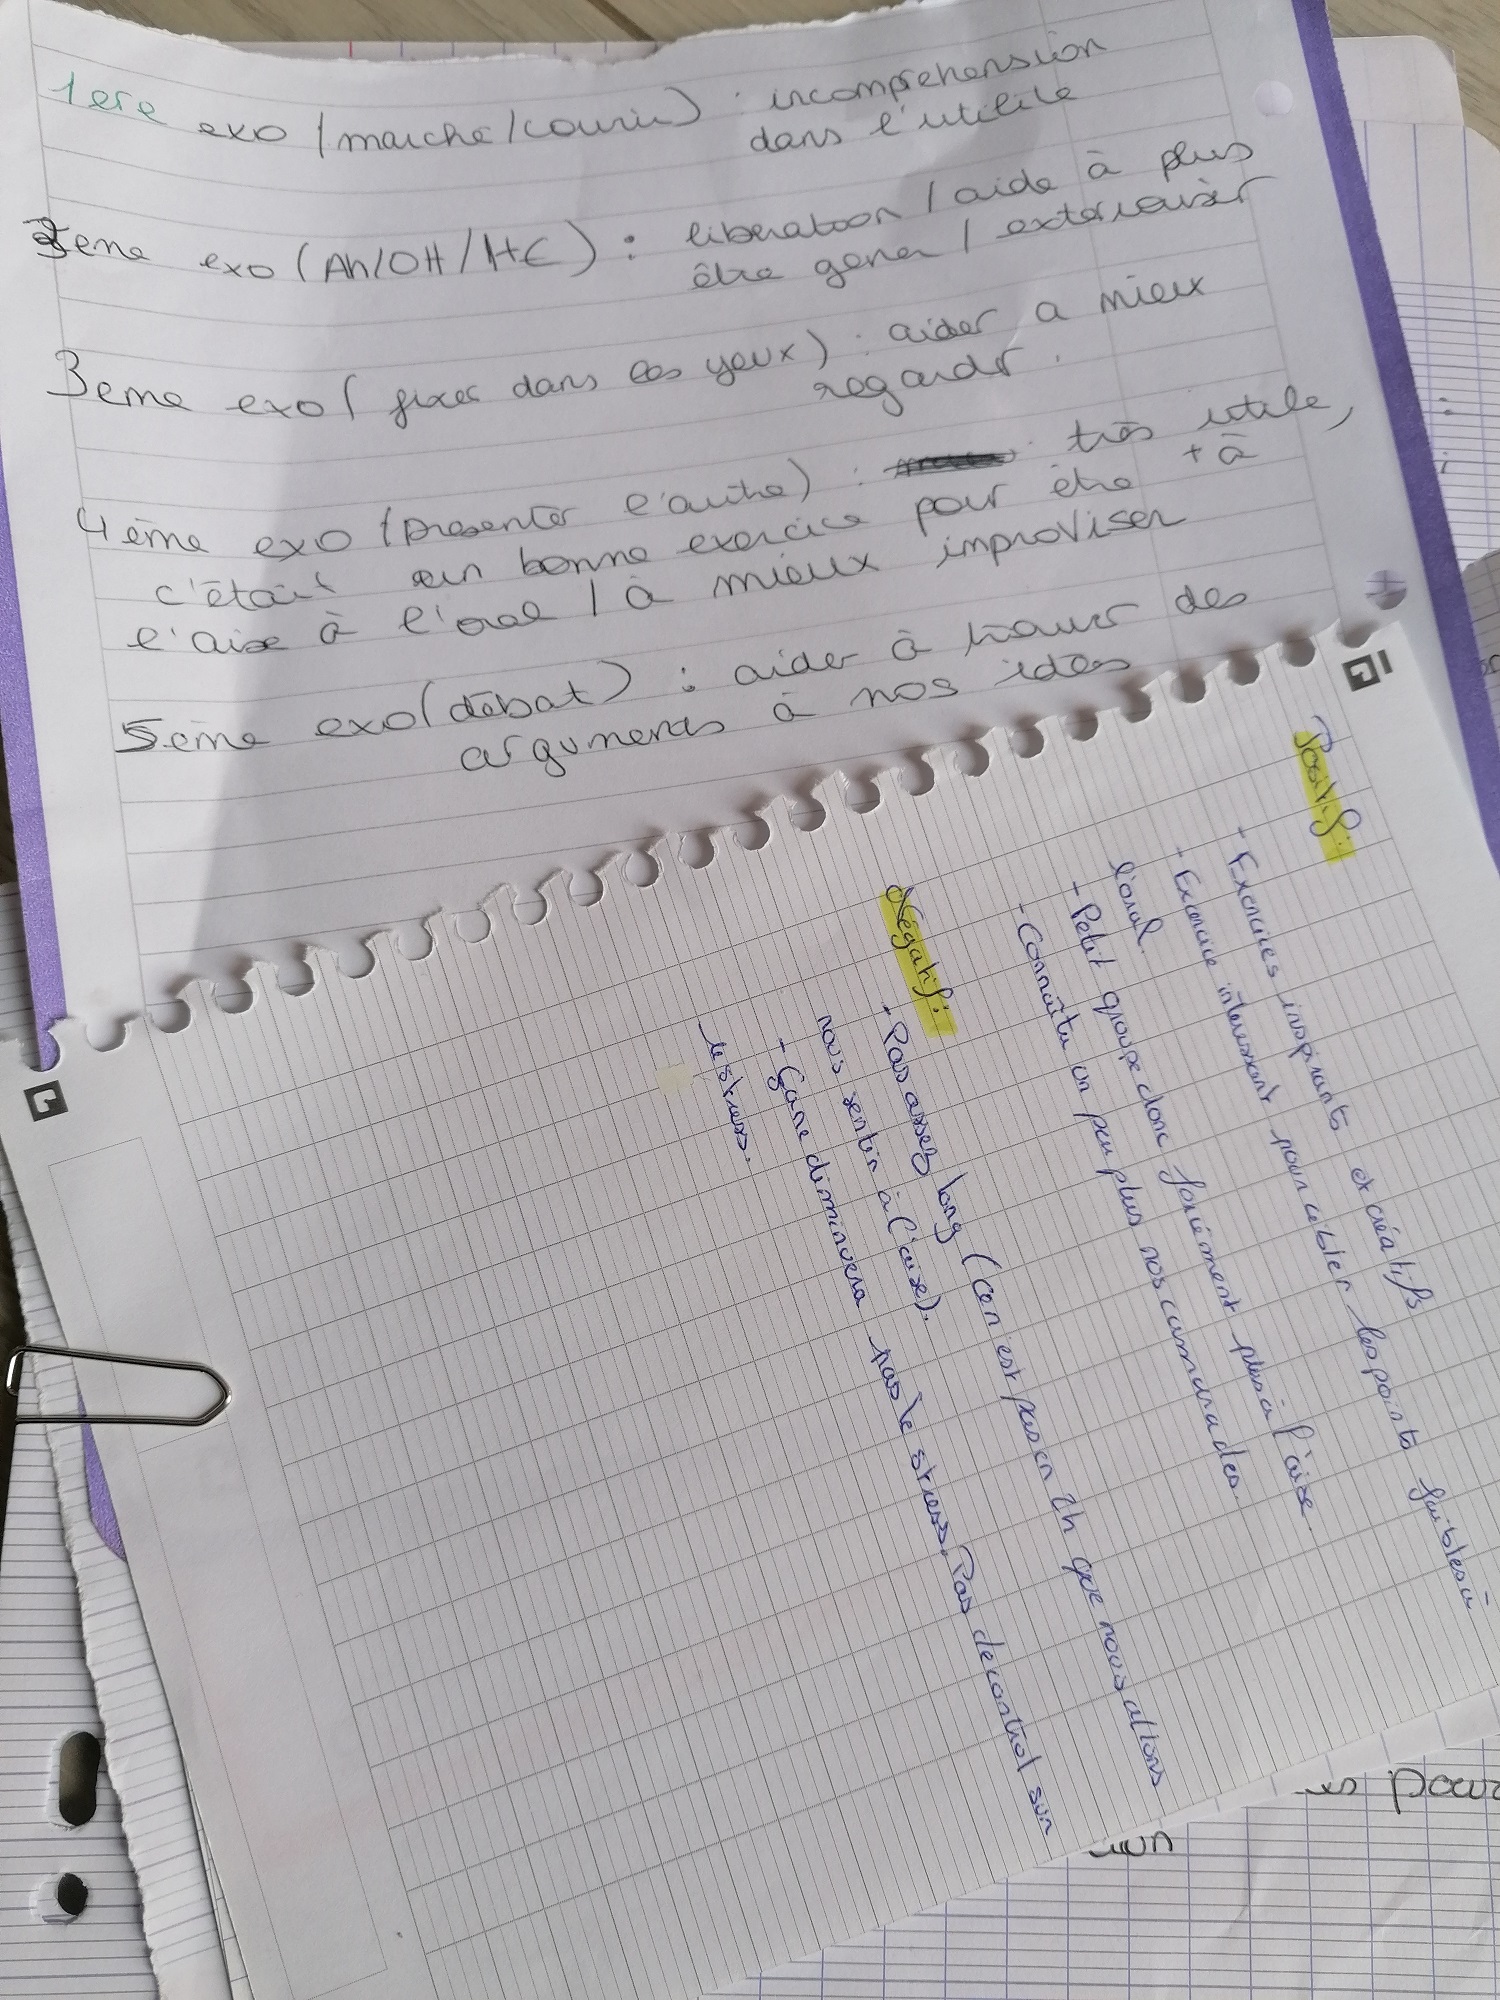 1ere exo (marche/courir) : incomprehension
dans l'utilité
2eme exo (Ah/OH/HE) : liberation / aide à plus
être gener / exterioriser
3eme exo ( fixer dans les yeux) : aider a mieux
regarder.
4ème exo (presenter l'autre) : très utile,
c'était un bonne exercice pour être + à
l'aise à l'oral / à mieux improviser
5ème exo (débat) : aider à trouver des
arguments à nos idées
Positif :
- Exercices inspirants et créatifs
- Exercice interessant pour cibler les points faibles à
l'oral.
- Petit groupe donc forcément plus à l'aise.
- Connaître un peu plus nos camarades.
Négatif :
- Pas assez long (ce n'est pas en 2h que nous allons
nous sentir à l'aise).
- Gène diminuera pas le stress. Pas de control sur
le stress.
pour